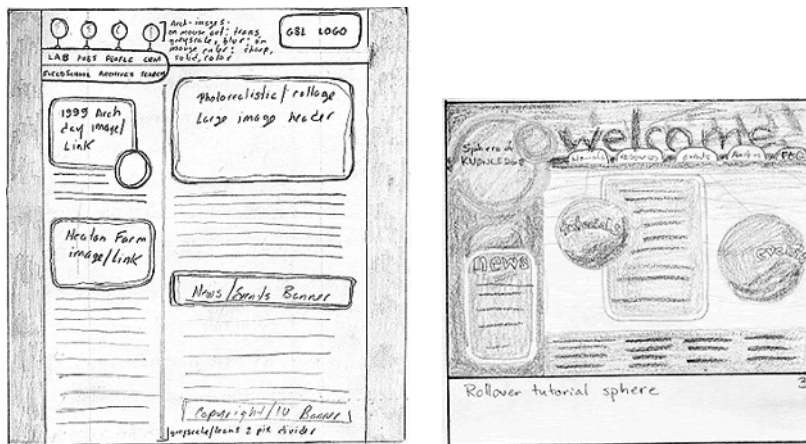 Arch-images-
on mouse out: trans,
greyscale, blur; on
mouse enter: sharp,
solid, color
GBL LOGO
LAB PUBS PEOPLE CRM
FIELDSCHOOL ARCHIVES SEARCH
1999 Arch
day image/
Link
Photorealistic/collage
Large image header
Heaton Farm
image/link
News/Events Banner
Copyright/IU Banner
greyscale/trans 2 pix divider
Welcome
Sphere of
KNOWLEDGE
resources
events
FAQ
tutorials
news
Rollover tutorial sphere
3